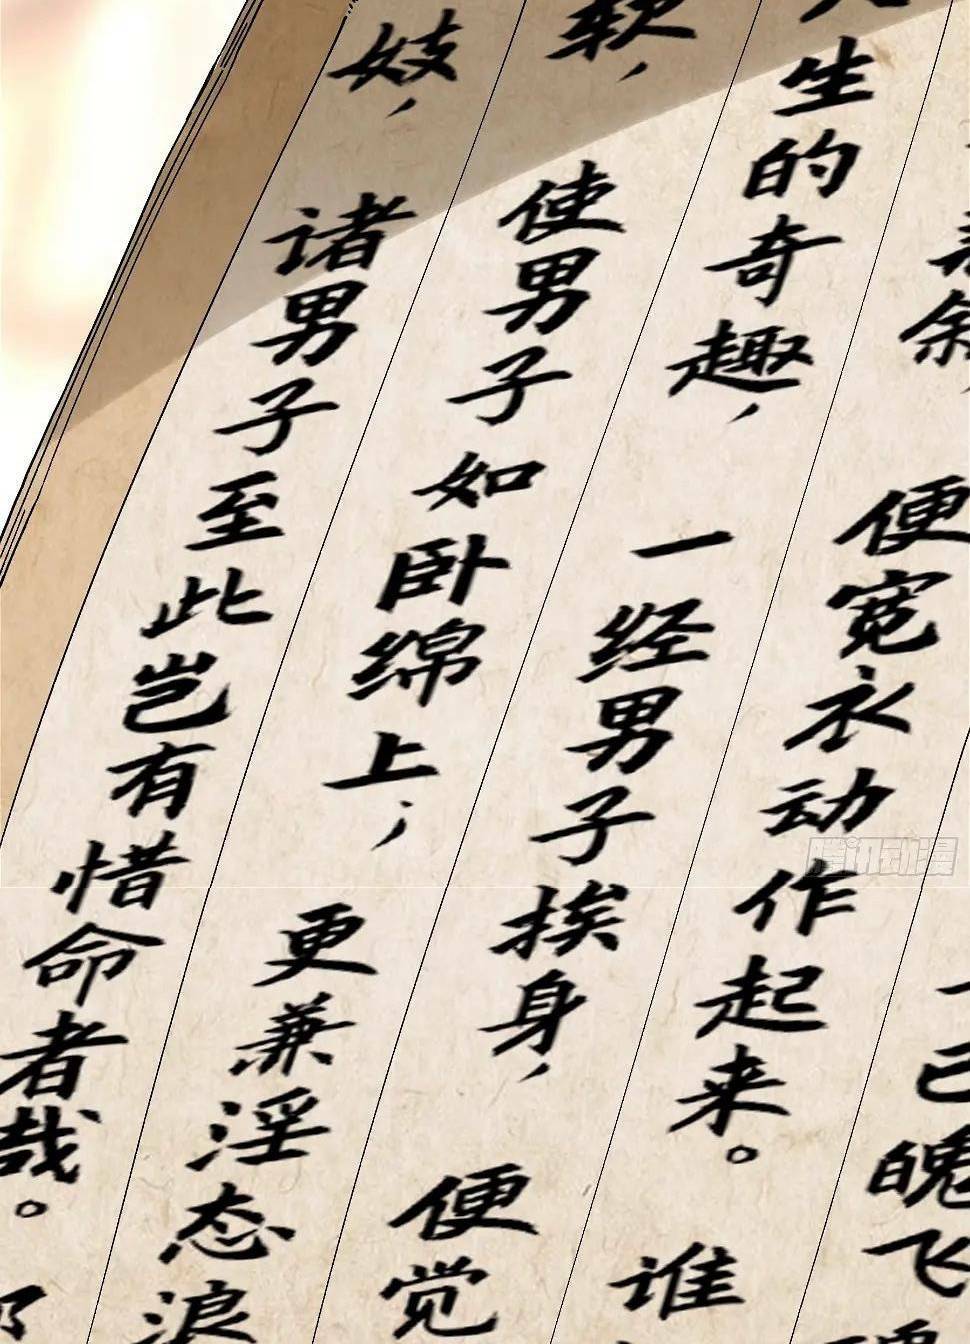 已魄飞
叙，便宽衣动作起来。谁
生的奇趣，一经男子挨身，便觉
软，使男子如卧绵上，更兼淫态浪
妓，诸男子至此岂有惜命者哉。
腾讯动漫